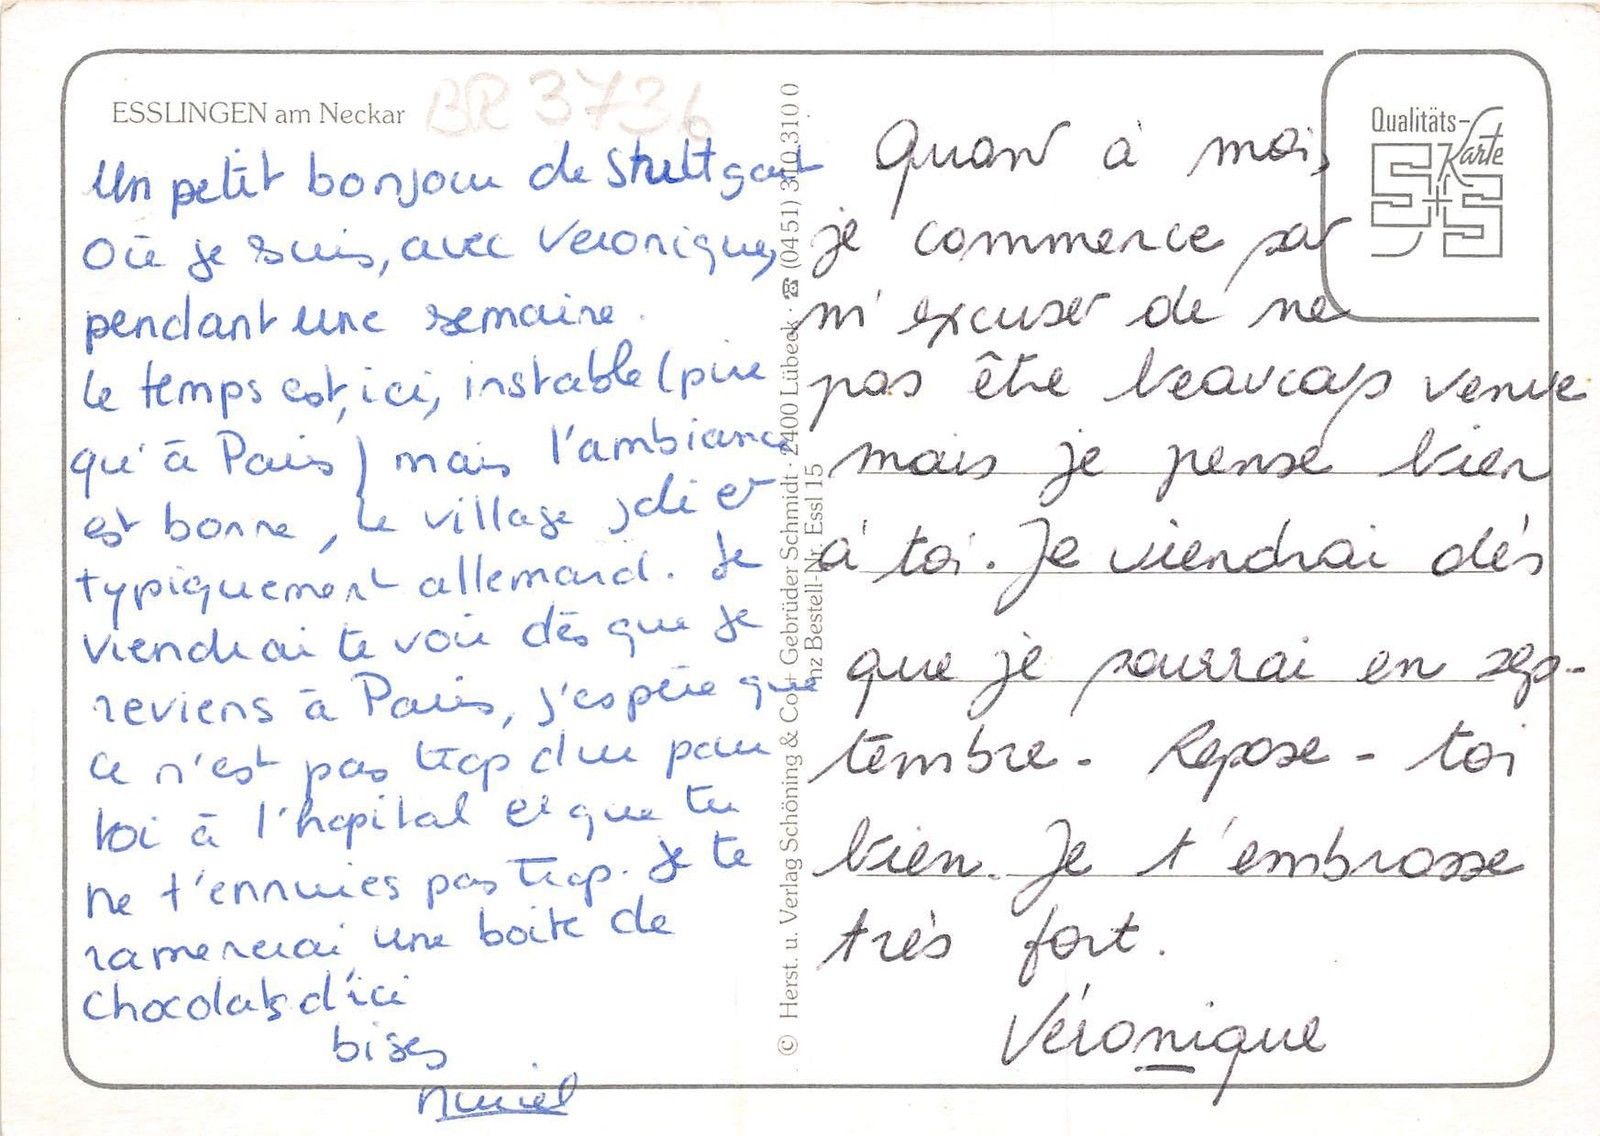 ESSLINGEN am Neckar
BR 3736
Un petit bonjour de Stuttgart
où je suis, avec Veronique,
pendant une semaine.
le temps est, ici, instable (pire
qu'à Paris) mais l'ambiance
est bonne, le village joli et
typiquement allemand. Je
viendrai te voir dès que je
reviens à Paris, j'espère que
ce n'est pas trop dur pour
toi à l'hopital et que tu
ne t'ennuies pas trop. Je te
ramenerai une boite de
chocolats d'ici
bises
Muriel
© Herst. u. Verlag Schöning & Co + Gebrüder Schmidt · 2400 Lübeck · ☎ (0451) 310 310 0
nz Bestell-Nr. Essl 15
Qualitäts-
Karte
S+S
Quant à moi,
je commence par
m'excuser de ne
pas être beaucoup venue
mais je pense bien
à toi. Je viendrai dés
que je pourrai en sep-
tembre. Repose-toi
bien. Je t'embrasse
très fort.
Véronique